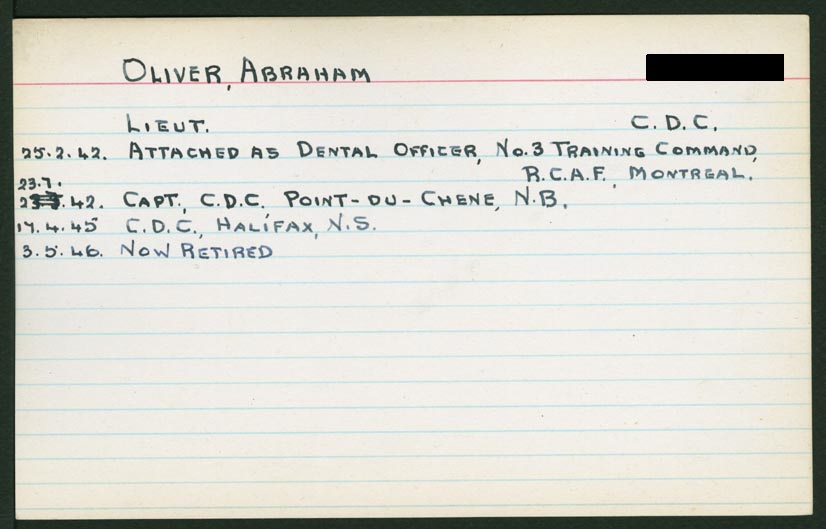 OLIVER, ABRAHAM
LIEUT. C.D.C.
25.2.42. ATTACHED AS DENTAL OFFICER, No.3 TRAINING COMMAND,
R.C.A.F., MONTREAL.
23.7.
42. CAPT., C.D.C. POINT-DU-CHENE, N.B.
17.4.45 C.D.C., HALIFAX, N.S.
3.5.46. NOW RETIRED